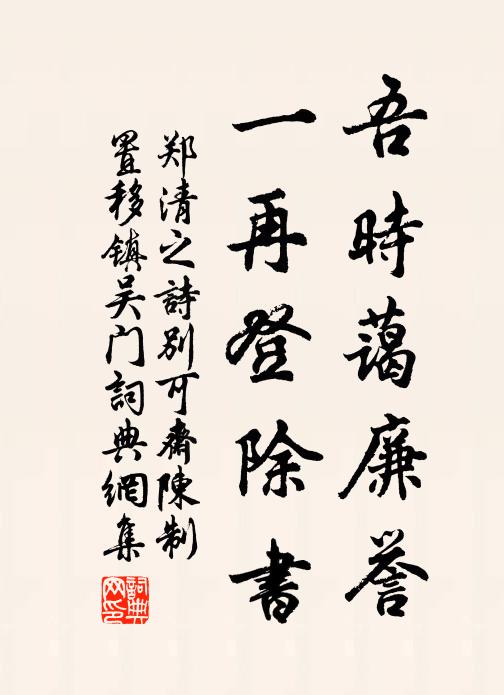 吾時藹廉誉
一再登除書
郑清之詩别可齋陳制
置移镇吴门詞典網集
詞典網印